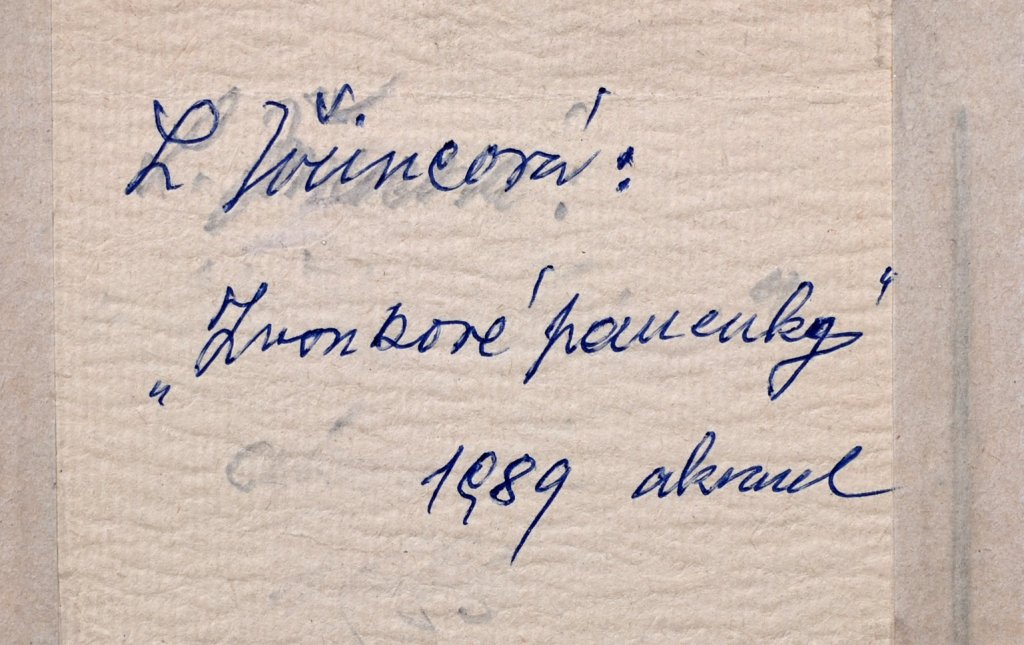 L. Jiřincová:
„Zvonkové panenky"
1989 akvarel